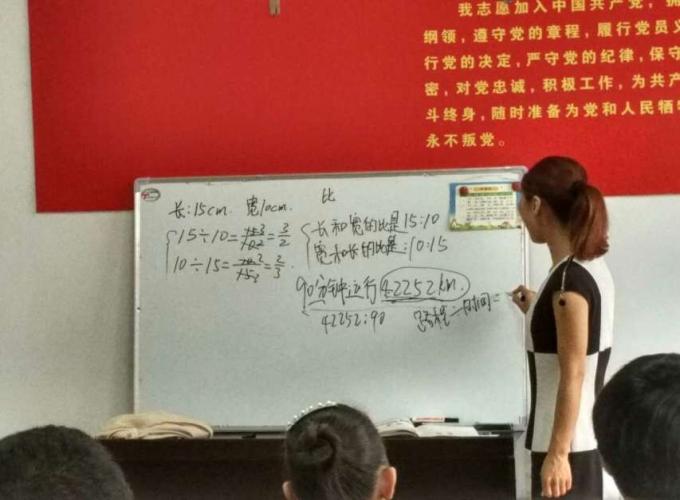 我志愿加入中国共产党，拥
纲领，遵守党的章程，履行党员义
行党的决定，严守党的纪律，保守
密，对党忠诚，积极工作，为共产
斗终身，随时准备为党和人民牺牲
永不叛党。
比
长:15cm. 宽10cm.
15÷10=15/10=3/2
10÷15=10/15=2/3
长和宽的比是15:10
宽和长的比是:10:15
90分钟运行42252km.
42252:90
路程÷时间=